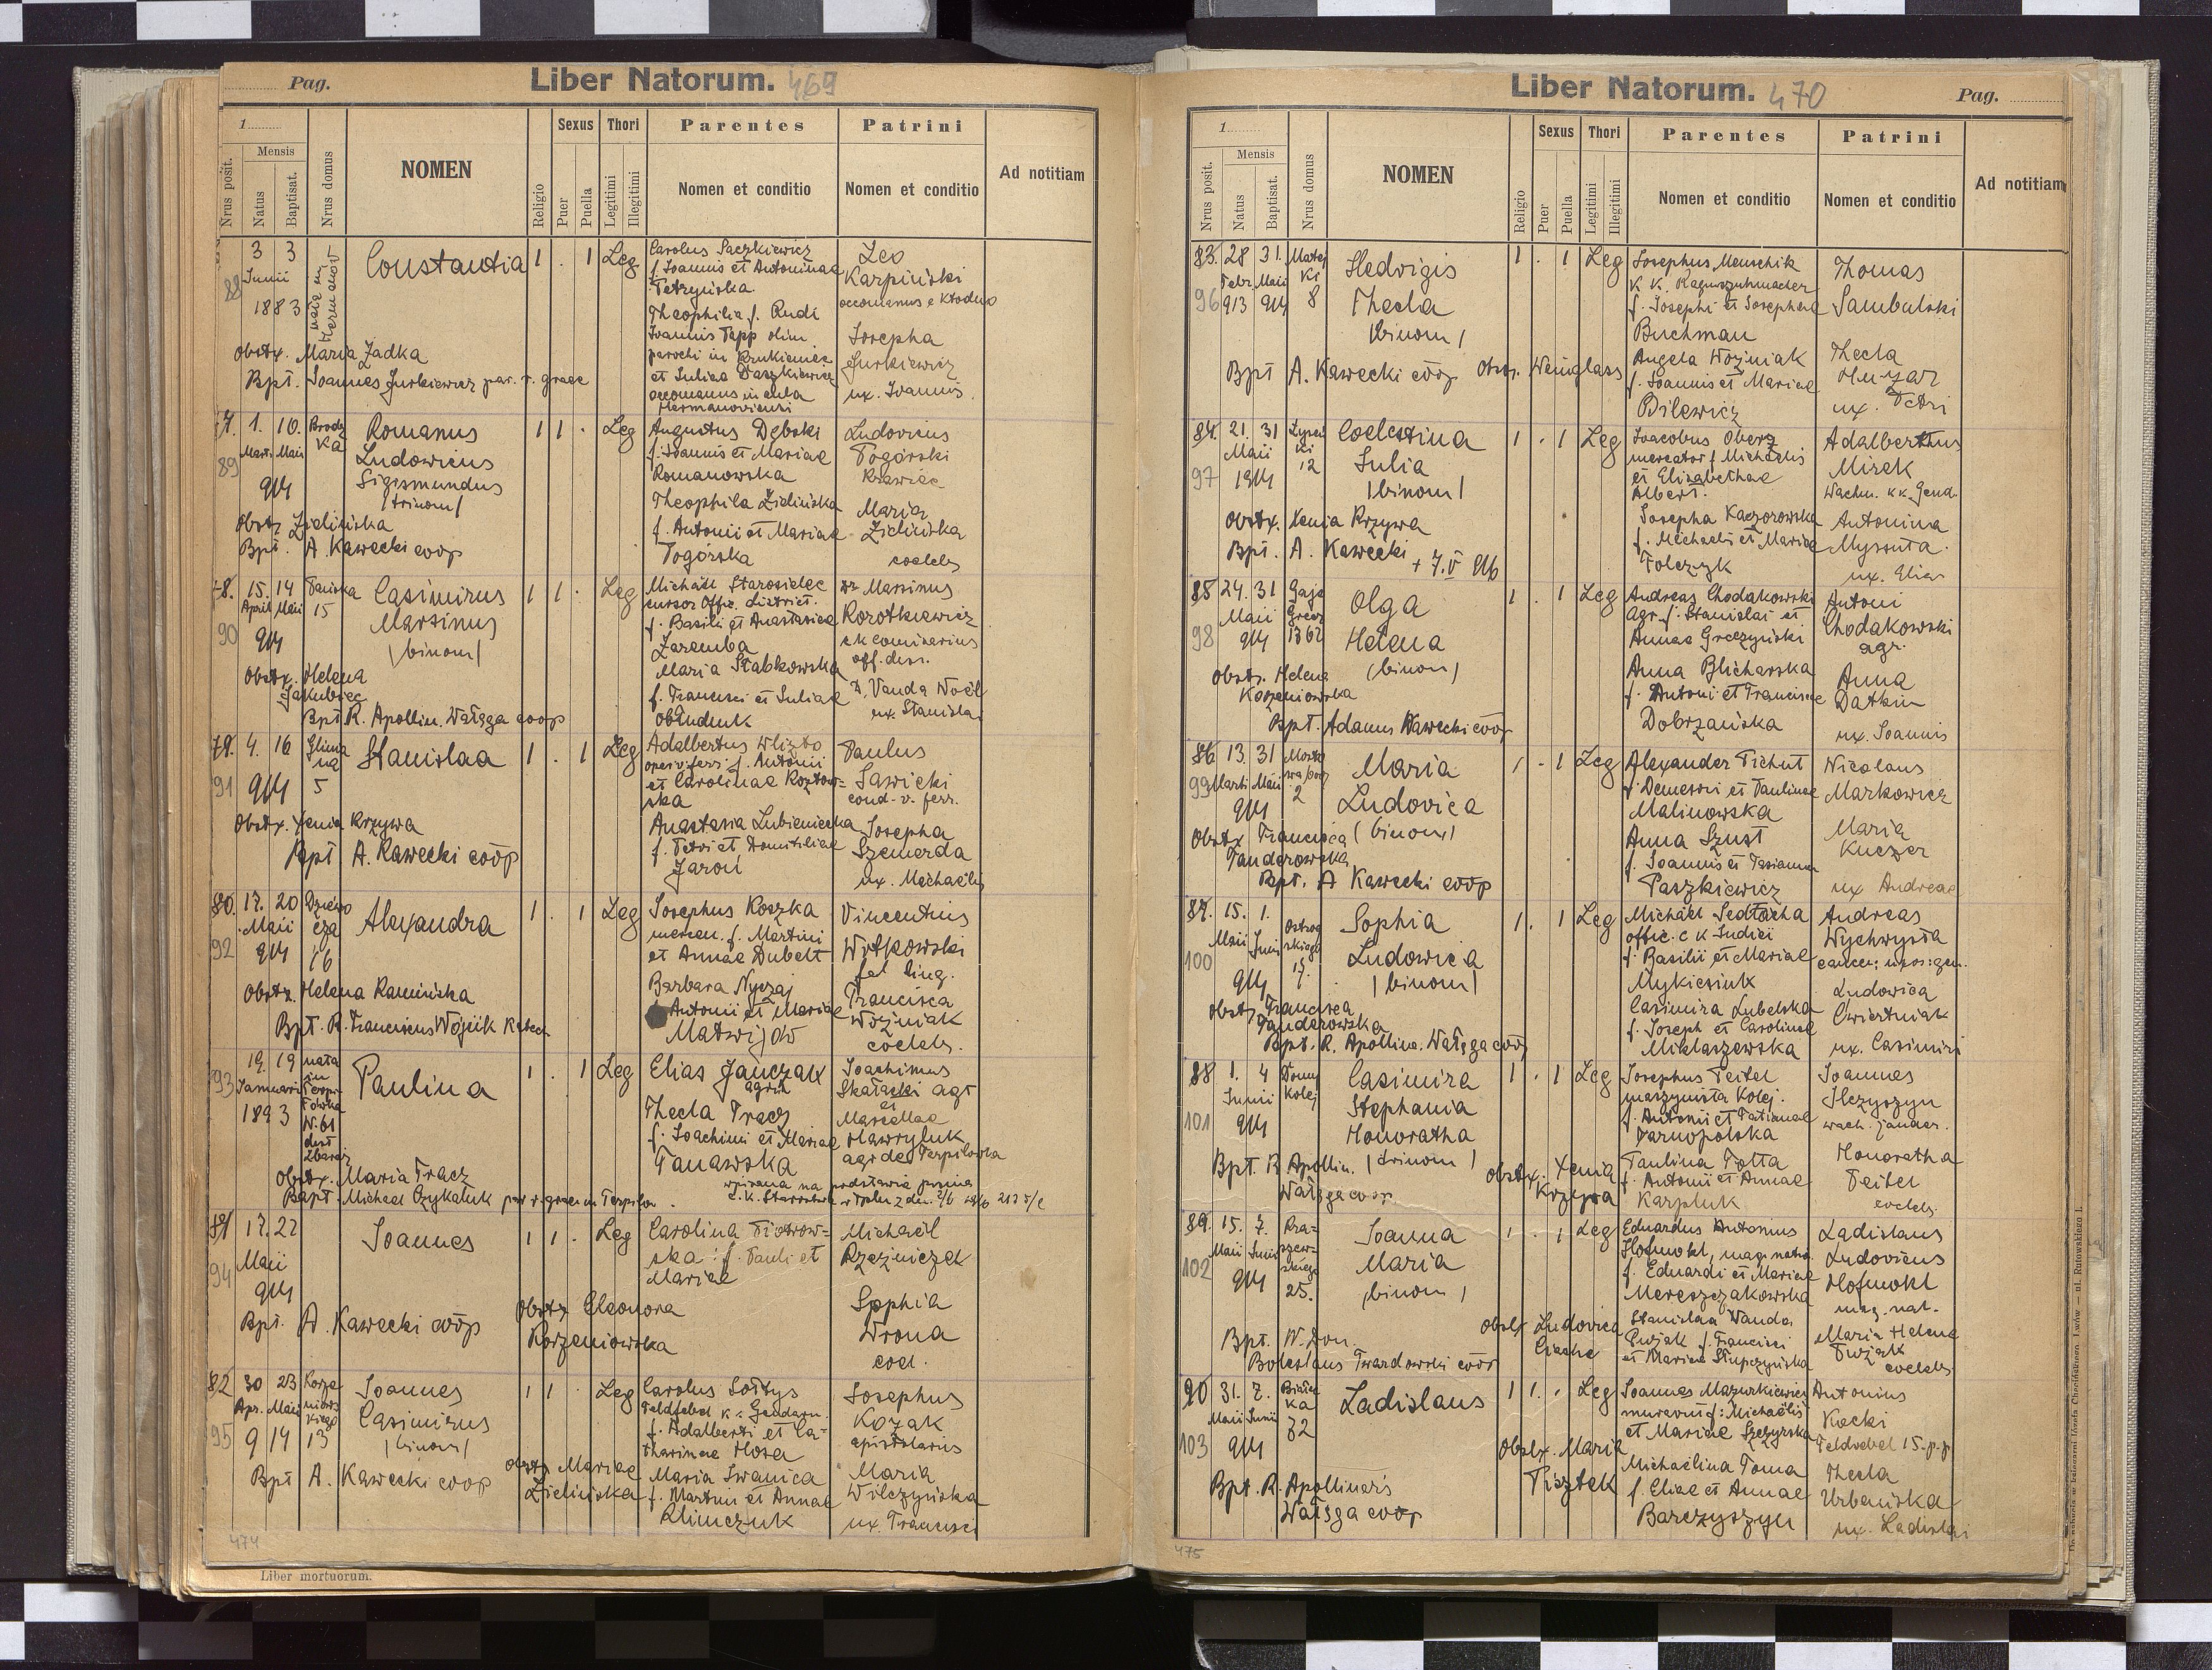 Pag.
Liber Natorum. 469
1
Mensis
Nrus posit.
Natus
Baptisat.
Nrus domus
NOMEN
Religio
Sexus
Puer
Puella
Thori
Legitimi
Illegitimi
Parentes
Nomen et conditio
Patrini
Nomen et conditio
Ad notitiam
88
3 3
Junii
1883
Constantia 1 . 1 Leg
Carolus Paczkiewicz
f. Joannis et Antoninae
Petryńska
Theophilia f. Rudi
Joannis Papp olim
parochi in Krukienice
et Juliae Daszkiewicz
occomanus in aula
Hermanovicensi
Leo
Karpiński
Josepha
Jurkiewicz
ux. Joannis
Obstx. Maria Zadka
Bpt. Joannes Jurkiewicz par. r. graec
77. 1. 10. Brodz
ka
Mart. Maii
89
914
Romanus
Ludowicus
Sigismundus
/trinom/
1 1 . Leg
Augustus Dębski
f. Joannis et Mariae
Romanowska
Theophila Zielińska
f. Antonii et Mariae
Pogórska
Ludovicus
Pogórski
Krawiec
Maria
Zielińska
coelebs
Obstx Zielińska
Bpt. A. Kawecki coop
78. 15. 14 Pańska
April Maii 15
90
914
Casimirus
Marsinus
/binom/
1 1 . Leg
Michaël Starosielec
cursor Offic. district.
f. Basili et Anastasiae
Zaremba
Maria Stabkowska
f. Francisci et Juliae
Obłudnik
Marsinus
Korotkiewicz
ck comisarius
D. Vanda Noël
ux. Stanislai
Obstx. Helena
Jakubiec
Bpt. R. Apollin. Wałęga coop
79. 4. 16 Glinia
na
91
914 5
Stanislaa 1 . 1 Leg
Adalbertus Wlizło
oper. v. ferr. f. Antonii
et Carolinae Kozłow-
ska
Anastasia Lubieniecka
f. Petri et Domitiliae
Jaroń
Paulus
Sawicki
cond. v. ferr.
Josepha
Szemerda
ux. Michaëlis
Obstx. Xenia Krzywa
Bpt A. Kawecki coop
80. 17. 20 Dziewo
Maii cza
92
914 16
Alexandra 1 . 1 Leg
Josephus Koszka
mercen. f. Martini
et Annae Dubelt
Barbara Nyczaj
f. Antonii et Mariae
Matwijów
Vincentius
Witkowski
fal ling.
Francisca
Woźniak
coelebs.
Obstx. Helena Kamińska
Bpt. R. Franciscus Wójcik Katech
93
19. 19
Januarii
1893
nata
in
N. 61
dist
Zbaraz
Paulina 1 . 1 Leg
Elias Janczak
agric
Thecla Tracz
f. Joachimi et Mariae
Panawska
Joachimus
Skałacki agr
et
Marcellae
Hawryluk
agr de Terpilowka
Obstx. Maria Tracz
Bapt. Michael Czykaluk par r. graec in Terpilow.
wpisana na podstawie pisma
81 17. 22
Maii
94
914
Joannes 1 1 . Leg
Carolina Piotrow-
ska : f. Pauli et
Mariae
Michaël
Rzeźniczek
Sophia
Wrona
coel.
Obstx Eleonora
Korzeniowska
Bpt. A. Kawecki coop
82 30 23 Korze
Apr. Maii niows
kiego
95 914 13
Joannes
Casimirus
/binom/
1 1 . Leg
Carolus Sołtys
Feldfebel k k Gendarm.
f. Adalberti et Ca-
tharinae Hosa
Maria Iwanica
f. Martini et Annae
Klimczuk
Josephus
Kozak
epistolarius
Maria
Wilczyńska
ux. Francisci
Obstx Mariae
Zielińska
Bpt A. Kawecki coop
474
Liber mortuorum.
Liber Natorum. 470
Pag.
1
Mensis
Nrus posit.
Natus
Baptisat.
Nrus domus
NOMEN
Religio
Sexus
Puer
Puella
Thori
Legitimi
Illegitimi
Parentes
Nomen et conditio
Patrini
Nomen et conditio
Ad notitiam
83. 28 31. Matej
Febr. Maii ki
96 913 914 8
Hedvigis
Thecla
/binom/
1 . 1 Leg
Josephus Menschik
f. Josephi et Josephae
Buchman
Angela Woźniak
f. Joannis et Mariae
Bilewicz
Thomas
Sambulski
Thecla
Huzar
ux. Petri
Bpt A. Kawecki coop Obst. Weinglass
84. 21. 31
Maii ki
97 1914 12
Coelestina
Julia
/binom/
1 . 1 Leg
Joacobus Oberz
mercator f. Michaelis
et Elisabethae
Albert.
Josepha Kaczorowska
f. Michaelis et Mariae
Tolczyk
Adalberthus
Mirek
Wachm. kk. Gend.
Antonina
Myssuta.
ux. Eliae
Obstx. Xenia Krzywa
Bpt. A. Kawecki + 7. V 916
85 24. 31 Gaje
Maii
98 914 1362
Olga
Helena
/binom/
1 . 1 Leg
Andreas Chodakowski
agr. f. Stanislai et
Annae Greczyński
Anna Blicharska
f. Antoni et Franciscae
Dobrzańska
Antoni
Chodakowski
agr.
Anna
Datkin
ux. Joannis
Obstx. Helena
Korzeniowska
Bpt. Adamus Kawecki coop
86 13. 31
99 Martii Maii
914 2
Maria
Ludovica
/binom/
1 . 1 Leg
Alexander Pichut
f. Demetri et Paulinae
Malinowska
Anna Szust
f. Joannis et Tasianna
Paszkiewicz
Nicolaus
Markowicz
Maria
Kuczer
ux Andreae
Obstx Francisca
Panderowska
Bpt. A Kawecki coop
87. 15. 1. Ostrog
Maii Junii skiego
100
914 17.
Sophia
Ludowica
/binom/
1 . 1 Leg
Michaël Sedłacha
offic. c k Judici
f. Basilii et Mariae
Mykiesiuk
Casimira Lubelska
f. Joseph et Carolinae
Miklaszewska
Andreas
Wychwysta
Ludowica
Ćwiertniak
ux. Casimiri
Obstx Francisca
Panderowska
Bpt. R. Apollina. Wałęga coop
88 1. 4 Domy
Junii kolej
101 914
Casimira
Stephania
Honoratha
/trinom/
1 . 1 Leg
Josephus Teitel
maszynista Kolej.
f. Antonii et Tatianae
Tarnopolska
Paulina Totta
f. Antonii et Annae
Karpluk
Joannes
Ilczyszyn
wach. jandar.
Honoratha
Teitel
coelebs.
Bpt. R Apollin.
Wałęga coop
Obstx. Xenia
Krzywa
89. 15. 7. Kra-
Maii Junii szew-
skiego
102 914 25.
Joanna
Maria
/binom/
1 . 1 Leg
Eduardus Antonius
Hofmokl, mag. nat.
f. Eduardi et Mariae
Mereszczakowska
Stanislaa Wanda
Gwjak f. Francisci
et Mariae Słupczyńska
Ladislaus
Ludovicus
Hofmokl
mag. nat.
Maria Helena
coelebs
Obstx Ludovica
Bpt. W. Don.
Boleslaus Twardowski coop
90 31. 7. Białec
Maii Junii ka
103 914 72
Ladislaus 1 1. . Leg
Joannes Mazurkiewicz
f: Michaëlis
et Mariae Szczyrska
Michaëlina Toma
f. Eliae et Annae
Barczyszyn
Antonius
Kocki
Feldwebel 15. p. p.
Thecla
Urbańska
ux. Ladislai
Obstx. Maria
Pisztek
Bpt. R. Apollinaris
Wałęga coop
475